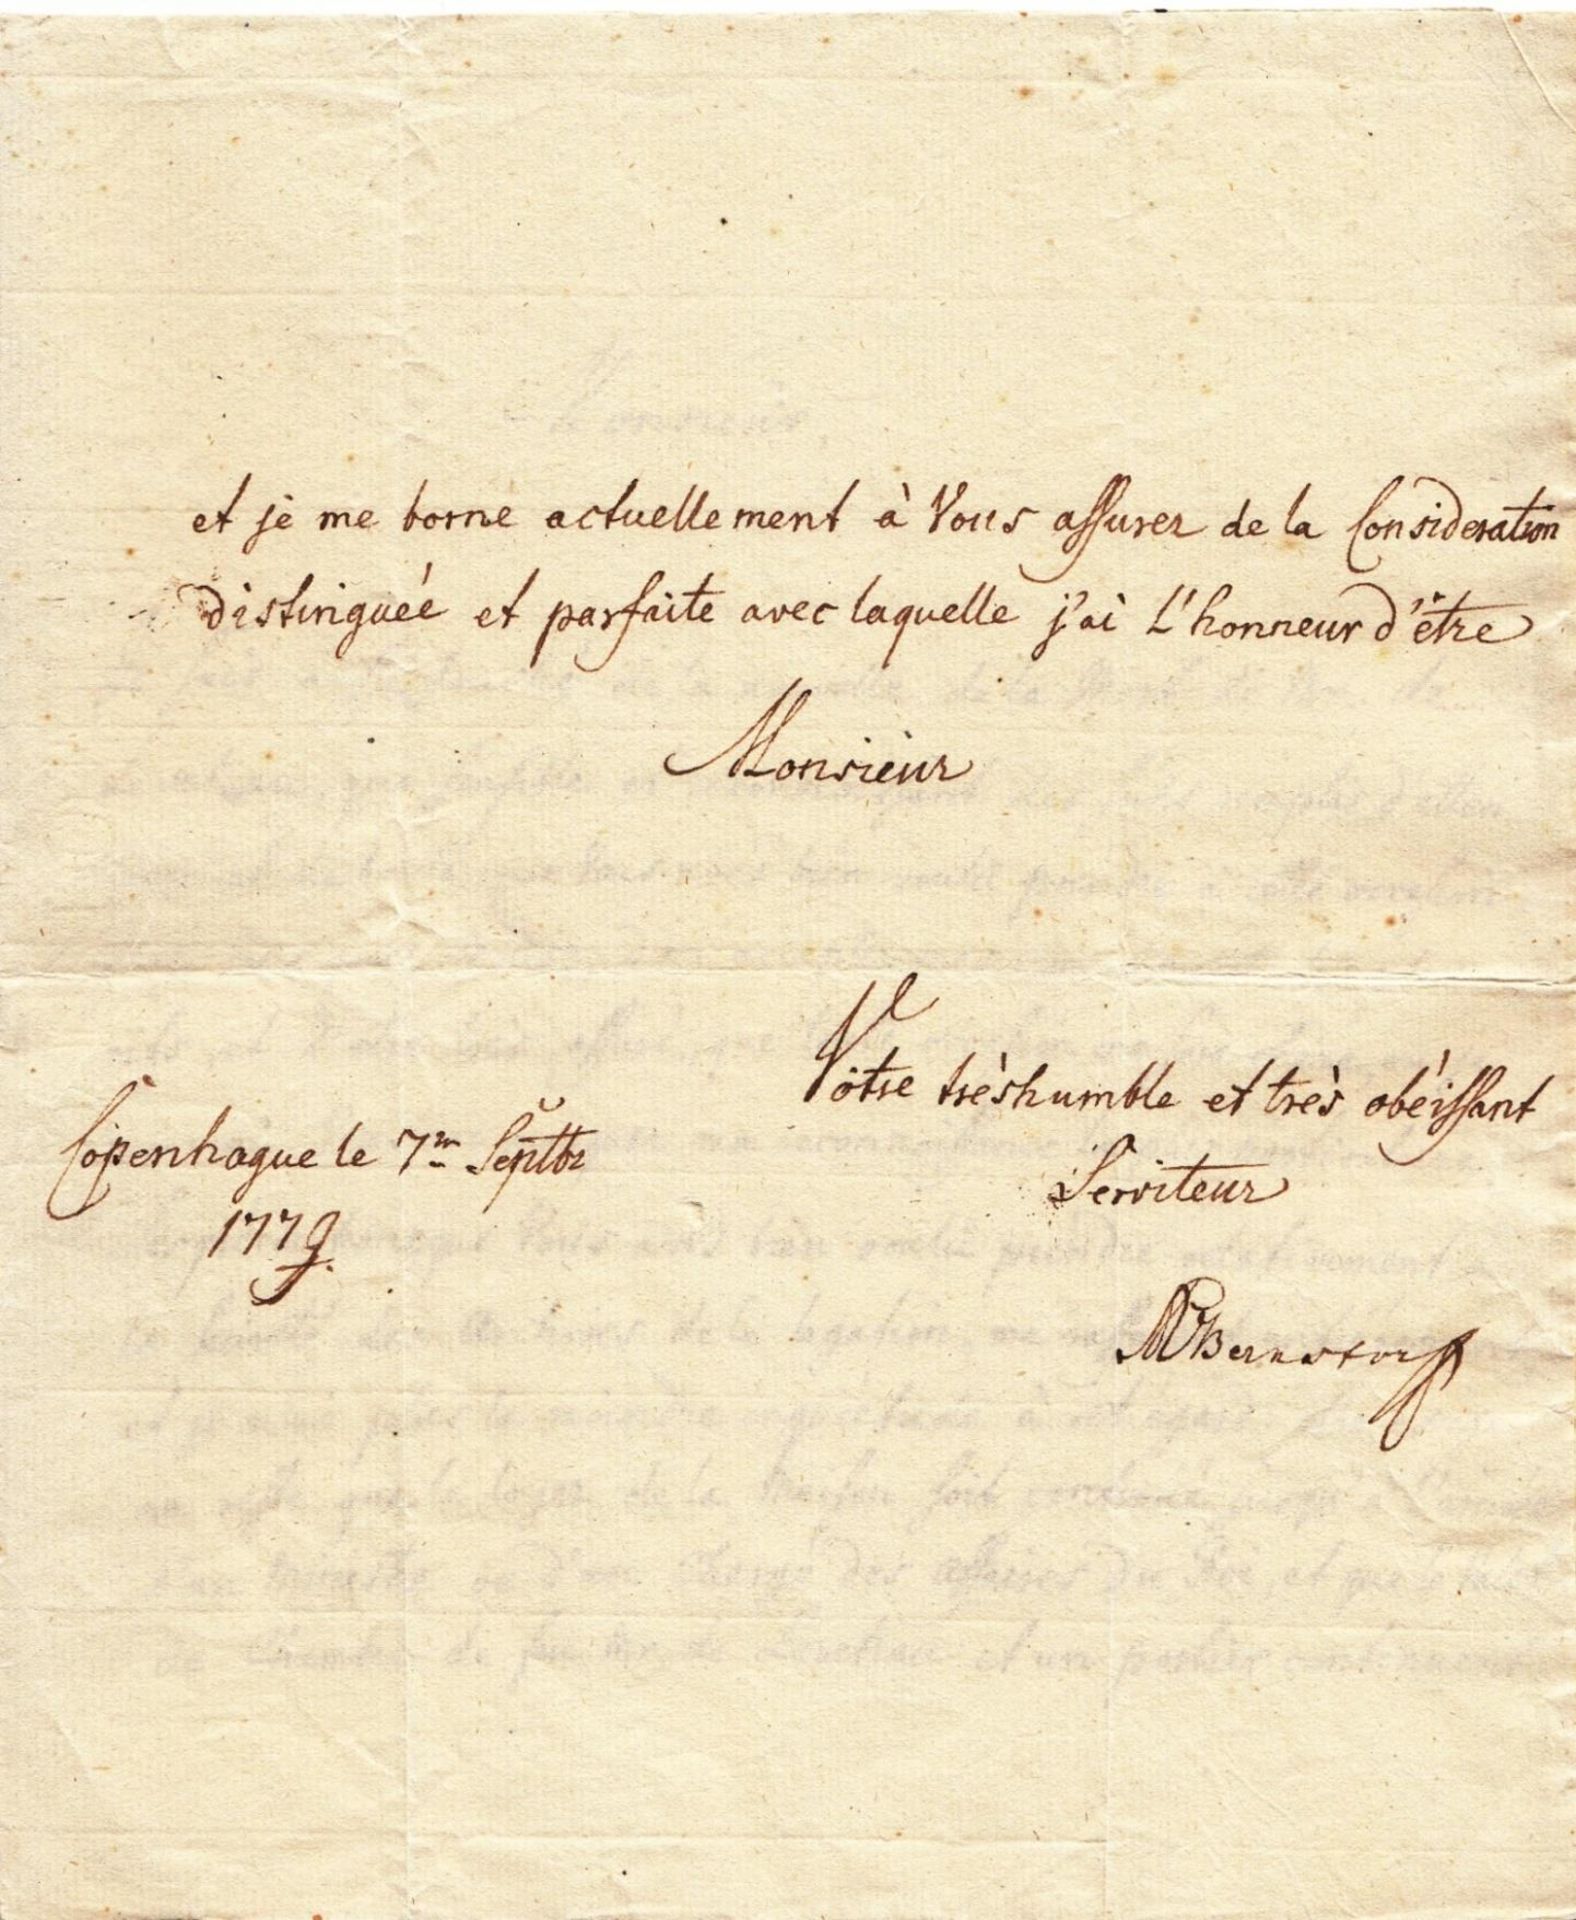 et je me borne actuellement à Vous assurer de la Consideration
distinguée et parfaite avec laquelle j'ai L'honneur d'être
Monsieur
Vôtre très humble et très obéissant
Serviteur
Copenhague le 7m Septbr
1779.
APBernstorff